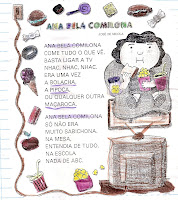 ANA BELA COMILONA
ANA BELA COMILONA
COME TUDO O QUE VÊ.
BASTA LIGAR A TV
NHAC, NHAC, NHAC.
ERA UMA VEZ
A BOLACHA,
A PIPOCA,
OU QUALQUER OUTRA
MAÇAROCA.
ANA BELA COMILONA
SÓ NÃO ERA
MUITO SABICHONA.
NA MESA,
ENTENDIA DE TUDO.
NA ESCOLA,
NADA DE ABC.